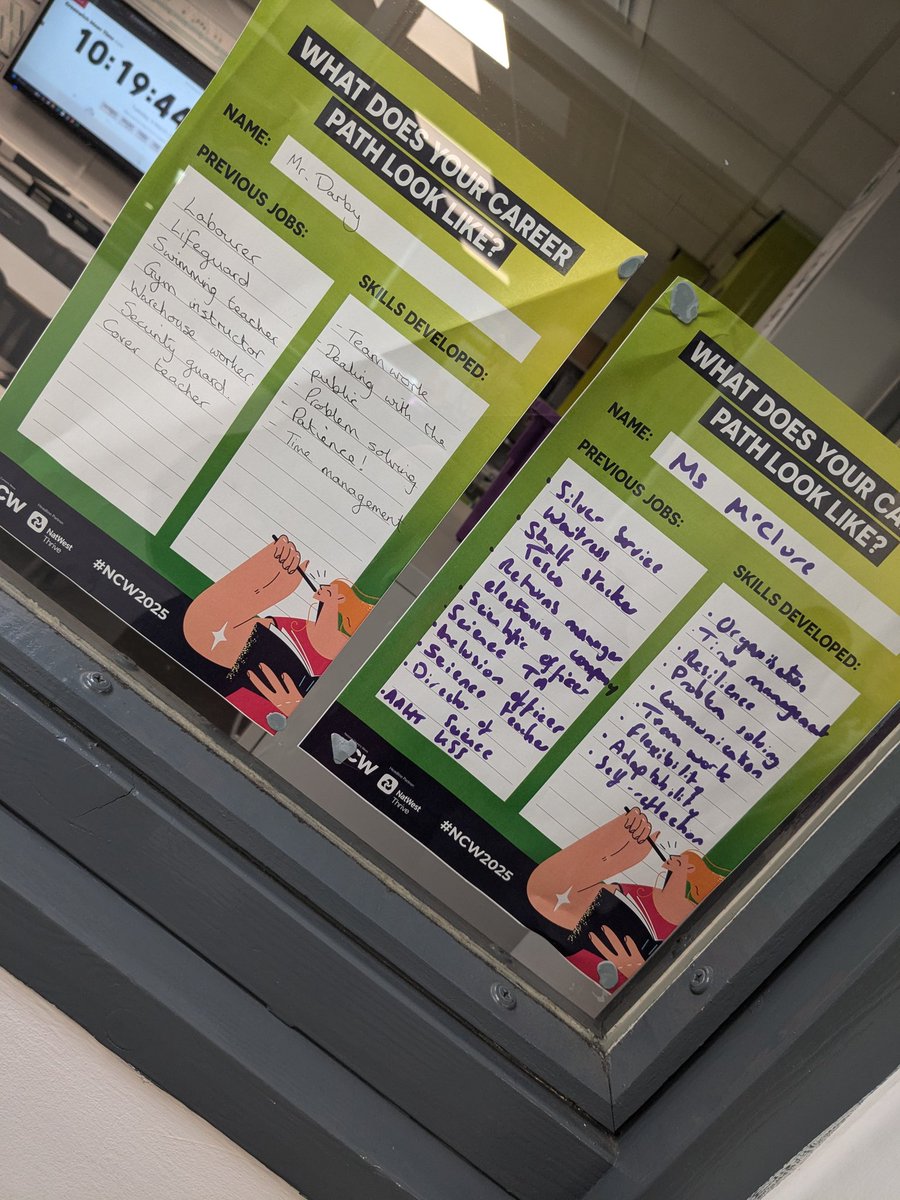 10:19:44
WHAT DOES YOUR CAREER
PATH LOOK LIKE?
NAME:
Mr. Darby
PREVIOUS JOBS:
Labourer
Lifeguard
Swimming teacher
Gym instructor
Warehouse worker
Security guard.
Cover teacher
SKILLS DEVELOPED:
- Team work
- Dealing with the
public
- Problem solving
- Patience!
- Time management
CW
NatWest
Thrive
#NCW2025
WHAT DOES YOUR CA
PATH LOOK LIKE?
NAME:
Ms McClure
PREVIOUS JOBS:
• Silver Service
Waitress
• Shelf stacker
Tesco
• Returns manager
electronics company
• Scientific officer
• Science TA
• Inclusion officer
• Science teacher
• Director of
Science
SKILLS DEVELOPED:
• Organisation
• Time management
• Resilience
• Problem solving
• Communication
• Team work
• Flexibility
• Adaptability
• Self-reflection
CW
NatWest
Thrive
#NCW2025